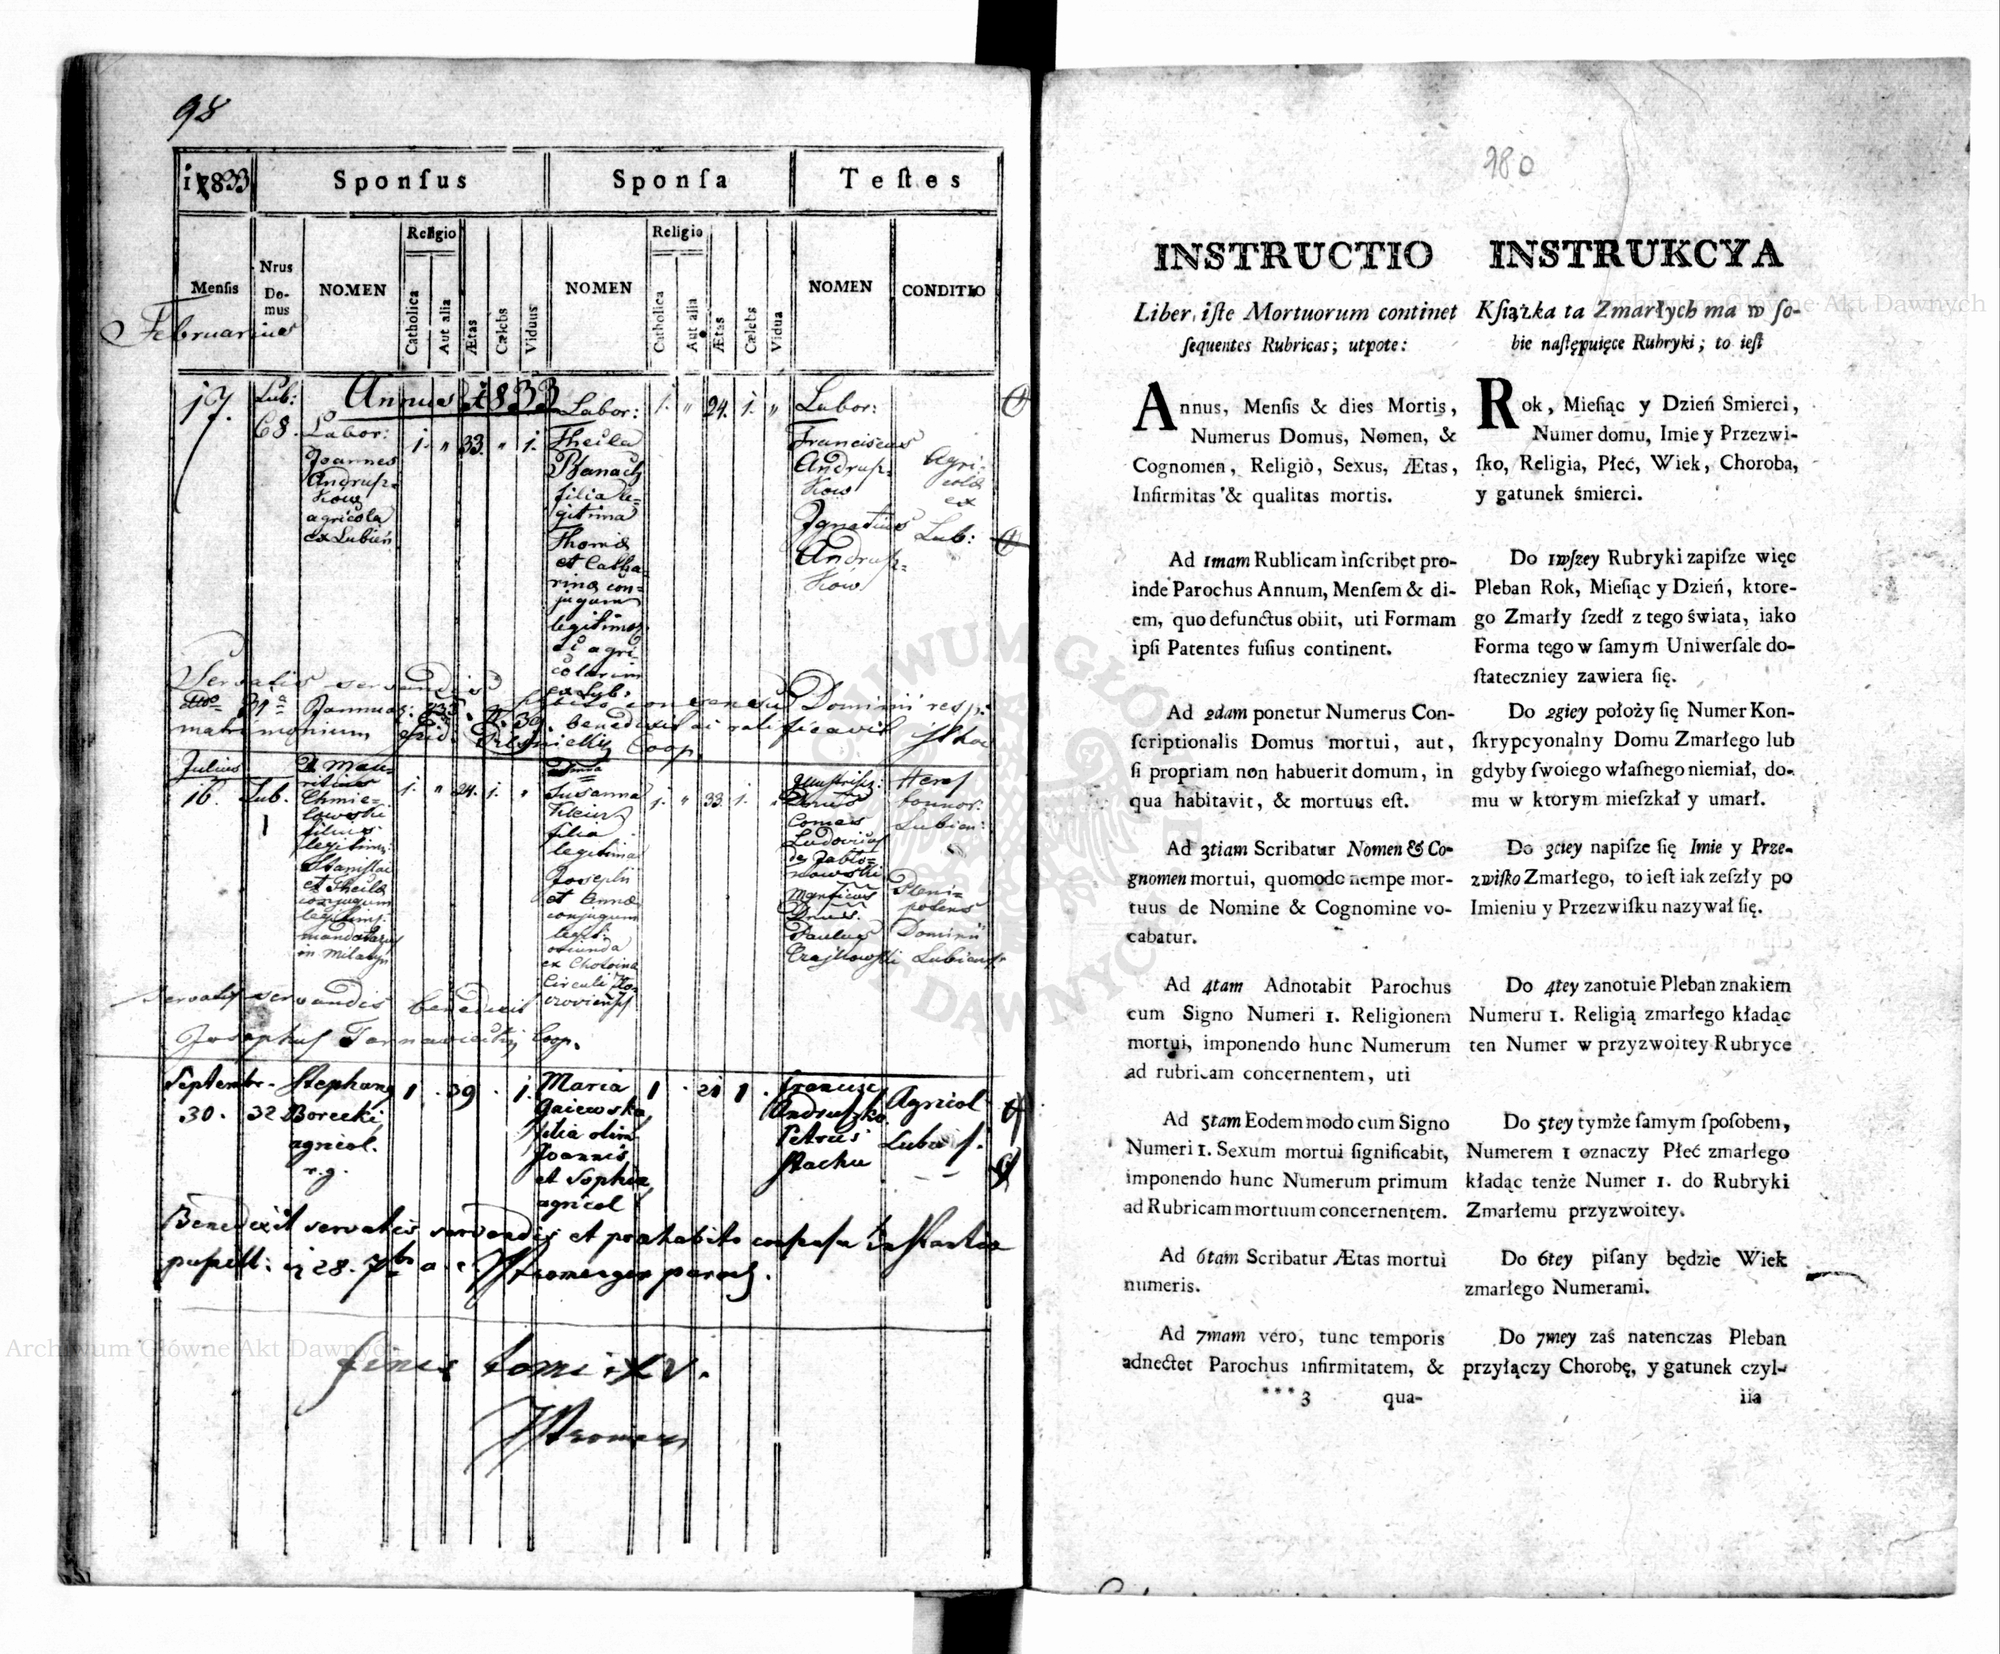 98
1833
Sponſus
Sponſa
Teſtes
Menſis
Nrus
Do-
mus
NOMEN
Religio
Catholica
Aut alia
Ætas
Cælebs
Viduus
NOMEN
Religio
Catholica
Aut alia
Ætas
Cælebs
Vidua
NOMEN
CONDITIO
Februarius
Annus 1833
17.
Lub:
68.
Labor:
Joannes
Andrusz-
kow
agricola
ex Lubień
1. " 33. " 1.
Labor:
Thecla
Banach
filia le-
gitima
Thomæ
et Catha-
rinæ con-
jugum
legitimor:
agri
colarum
ex Lub:
1. " 24. 1. "
Labor:
Franciscus
Andrusz-
kow
Ignatius
Andrusz-
kow
Agri-
colæ
ex
Lub:
Servatis servandis
31a Januar: 833 N. 30. benedixit ac ratificavit
matrimonium Coop.
Julius
16.
Lub.
1
D. Mau-
ritius
Chmie-
lowski
filius
legitim:
Stanislai
et Theclæ
conjugum
legitim:
mandatarius
in Milatyn
1. " 24. 1. "
Susanna
Klein
filia
legitima
Josephi
et Annæ
conjugum
legit:
oriunda
ex Chotoina
Circuli Zło-
czoviensis
1. " 33. 1. "
Illustriss:
Dnus
Comes
Ludovicus
de Jabło-
nowski
Mgnficus
Dnus
Paulus
Czajkowski
Heres
bonor:
Lubien:
Pleni-
potens
Dominii
Lubiens:
Servatis servandis benedixit
Josephus Tarnawiecki Coop.
Septembr.
30.
32
Stephanus
Borecki
agricol.
r.g.
1 . 39 . 1.
Maria
Gaiewska
filia olim
Joannis
et Sophiæ
agricol
1 . 21 1 .
Francisc
Andruszko
Petrus
Stachu
Agricol
Benedixit servatis servandis et præhabito
pupill: 28. 7br a. c. paroch.
finis tomi
180
INSTRUCTIO
Liber iſte Mortuorum continet
ſequentes Rubricas; utpote:
Annus, Menſis & dies Mortis,
Numerus Domus, Nomen, &
Cognomen, Religiò, Sexus, Ætas,
Infirmitas & qualitas mortis.
Ad 1mam Rublicam inſcribet pro-
inde Parochus Annum, Menſem & di-
em, quo defunctus obiit, uti Formam
ipſi Patentes fuſius continent.
Ad 2dam ponetur Numerus Con-
ſcriptionalis Domus mortui, aut,
ſi propriam non habuerit domum, in
qua habitavit, & mortuus eſt.
Ad 3tiam Scribatur Nomen & Co-
gnomen mortui, quomodo nempe mor-
tuus de Nomine & Cognomine vo-
cabatur.
Ad 4tam Adnotabit Parochus
cum Signo Numeri 1. Religionem
mortui, imponendo hunc Numerum
ad rubricam concernentem, uti
Ad 5tam Eodem modo cum Signo
Numeri 1. Sexum mortui ſignificabit,
imponendo hunc Numerum primum
ad Rubricam mortuum concernentem.
Ad 6tam Scribatur Ætas mortui
numeris.
Ad 7mam vero, tunc temporis
adnectet Parochus infirmitatem, &
***3 qua-
INSTRUKCYA
Kſiążka ta Zmarłych ma w ſo-
bie naſtępuięce Rubryki; to ieſt
Rok, Mieſiąc y Dzień Smierci,
Numer domu, Imie y Przezwi-
ſko, Religia, Płeć, Wiek, Choroba,
y gatunek śmierci.
Do 1wſzey Rubryki zapiſze więc
Pleban Rok, Mieſiąc y Dzień, ktore-
go Zmarły ſzedł z tego świata, iako
Forma tego w ſamym Uniwerſale do-
ſtateczniey zawiera ſię.
Do 2giey położy ſię Numer Kon-
ſkrypcyonalny Domu Zmarłego lub
gdyby ſwoiego właſnego niemiał, do-
mu w ktorym mieſzkał y umarł.
Do 3ciey napiſze ſię Imie y Prze-
zwiſko Zmarłego, to ieſt iak zeſzły po
Imieniu y Przezwiſku nazywał ſię.
Do 4tey zanotuie Pleban znakiem
Numeru 1. Religią zmarłego kładąc
ten Numer w przyzwoitey Rubryce
Do 5tey tymże ſamym ſpoſobem,
Numerem 1 oznaczy Płeć zmarłego
kładąc tenże Numer 1. do Rubryki
Zmarłemu przyzwoitey.
Do 6tey piſany będzie Wiek
zmarłego Numerami.
Do 7mey zaś natenczas Pleban
przyłączy Chorobę, y gatunek czyl-
iia
Archiwum Główne Akt Dawnych
Archiwum Główne Akt Dawnych